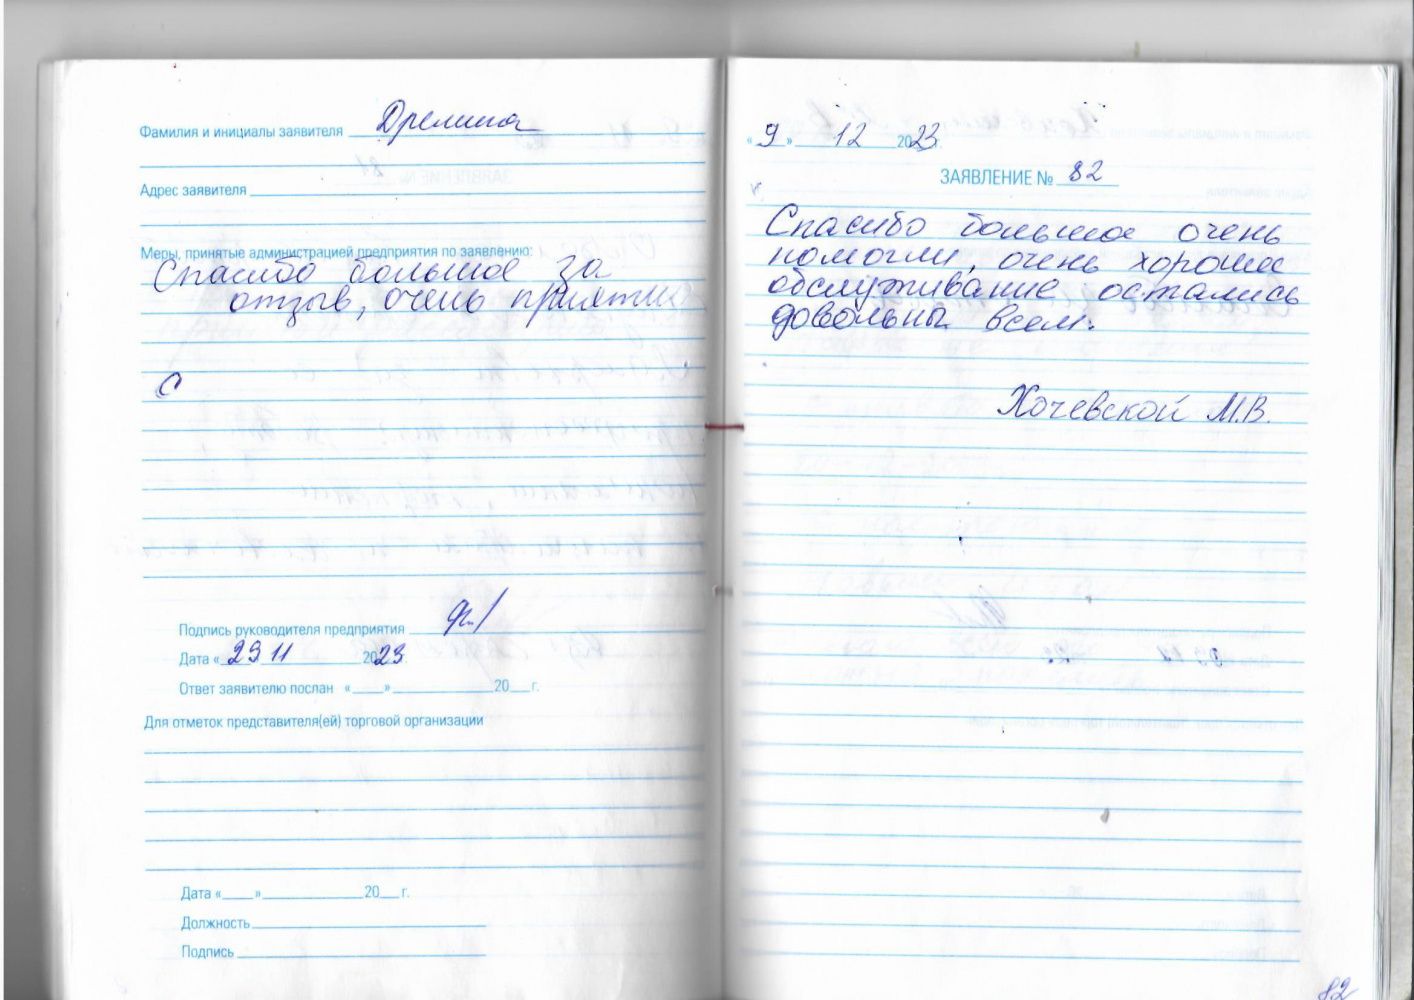 Фамилия и инициалы заявителя Дремина
Адрес заявителя
Меры, принятые администрацией предприятия по заявлению:
Спасибо большое за
отзыв, очень приятно
С
Подпись руководителя предприятия
Дата « 29 11 2023
Ответ заявителю послан « » 20 г.
Для отметок представителя(ей) торговой организации
Дата « » 20 г.
Должность
Подпись
« 9 » 12 2023 г.
ЗАЯВЛЕНИЕ № 82
Спасибо большое очень
помогли, очень хорошее
обслуживание остались
довольны всем.
Хочевской М.В.
82